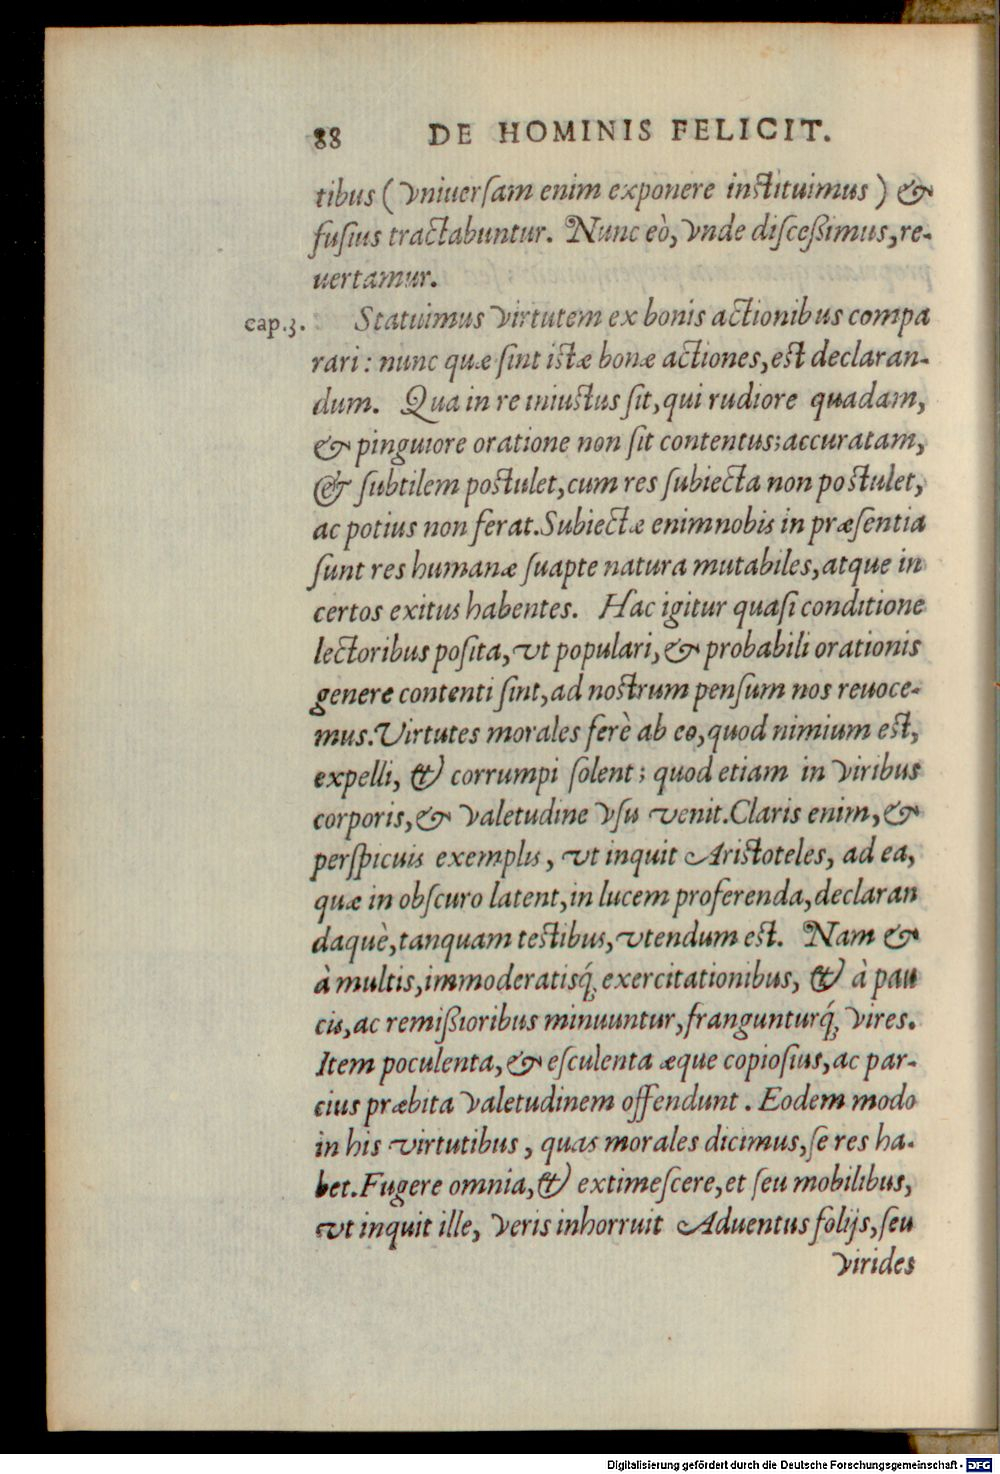 88 DE HOMINIS FELICIT.
tibus (vniuersam enim exponere instituimus) &
fusius tractabuntur. Nunc eò, vnde disceßimus, re-
uertamur.
cap.3. Statuimus virtutem ex bonis actionibus compa
rari: nunc quæ sint istæ bonæ actiones, est declaran-
dum. Qua in re iniustus sit, qui rudiore quadam,
& pinguiore oratione non sit contentus; accuratam,
& subtilem postulet, cum res subiecta non postulet,
ac potius non ferat. Subiectæ enim nobis in præsentia
sunt res humanæ suapte natura mutabiles, atque in
certos exitus habentes. Hac igitur quasi conditione
lectoribus posita, vt populari, & probabili orationis
genere contenti sint, ad nostrum pensum nos reuoce-
mus. Virtutes morales ferè ab eo, quod nimium est,
expelli, & corrumpi solent; quod etiam in viribus
corporis, & valetudine vsu venit. Claris enim, &
perspicuis exemplis, vt inquit Aristoteles, ad ea,
quæ in obscuro latent, in lucem proferenda, declaran
daquè, tanquam testibus, vtendum est. Nam &
à multis, immoderatisq́; exercitationibus, & à pau
cis, ac remißioribus minuuntur, frangunturq́; vires.
Item poculenta, & esculenta æque copiosius, ac par-
cius præbita valetudinem offendunt. Eodem modo
in his virtutibus, quas morales dicimus, se res ha-
bet. Fugere omnia, & extimescere, et seu mobilibus,
vt inquit ille, veris inhorruit Aduentus folijs, seu
virides
Digitalisierung gefördert durch die Deutsche Forschungsgemeinschaft - DFG